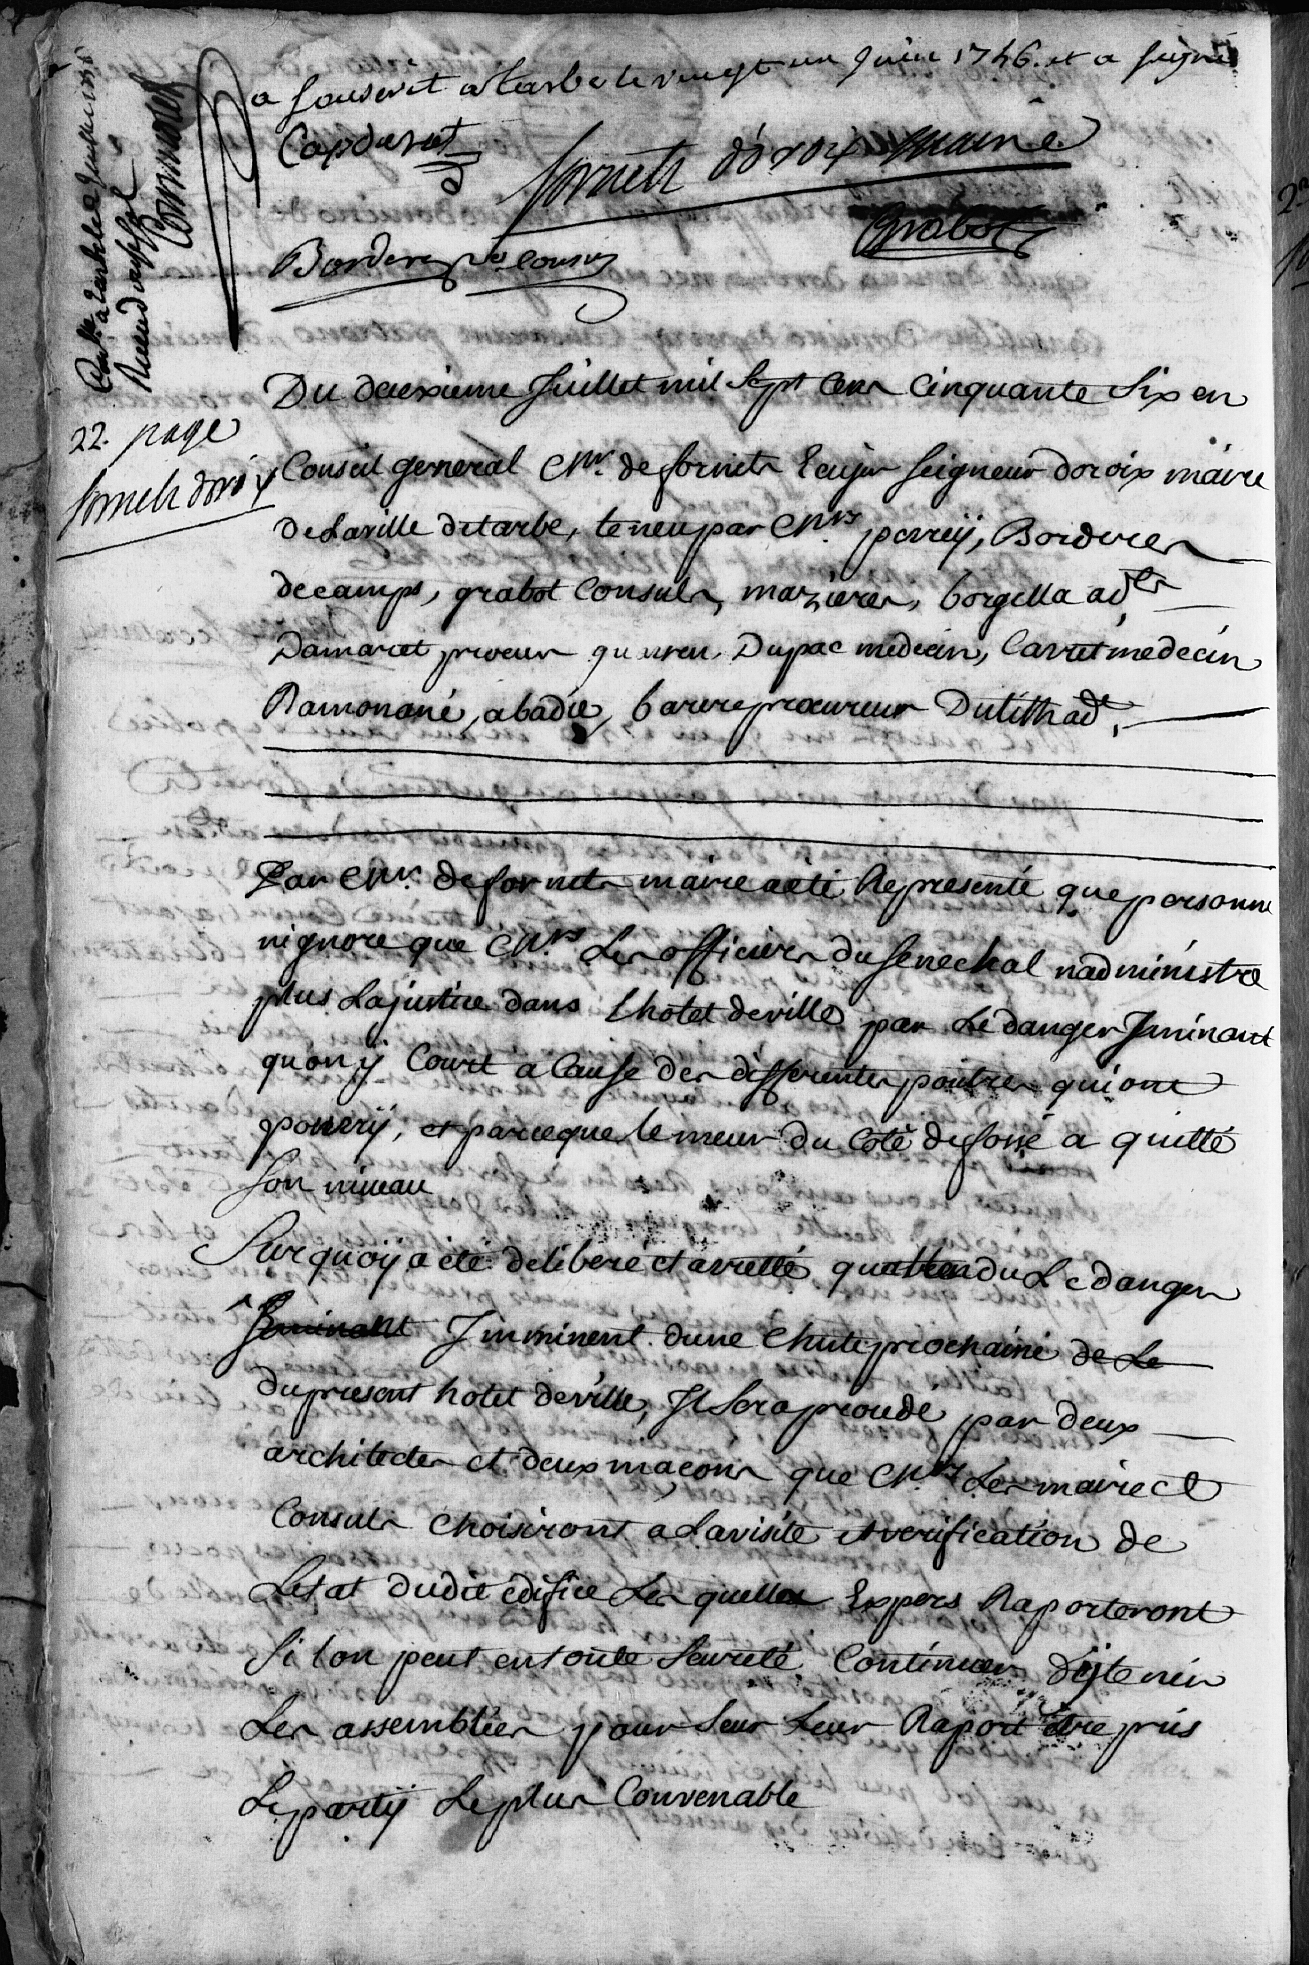 a souscrit a tarbe le vingt un Juin 1756. et a signé
Capdarret
fornets dóroix maire
Grabot
Bordere p.r Consul
22. page
fornets doroix
Du deuxieme Juillet mil Sept Cens Cinquante Six en
Conseil general Mr. de fornets Ecuyer Seigneur doroix maire
de Laville detarbe, tenu par Mrs. perreÿ, Borderes
decamps, grabot Consuls, mazieres, borgella adts
Damaret procureur Dupac medecin, Carret medecin
Ramonané, abadie, barere procureur Dutilh adt,
Par Mr. defornets maire aeté Representé que personne
nignore que Mrs. Les officiers du Senechal nadministre
plus Lajustice dans Lhotel deville par Le danger Jminant
quon ÿ Court a Cause des differentes poutres qui ont
pourrÿ, et parceque le meur du Coté du fossé a quitté
Son niveau
Sur quoÿ a été deliberé et arretté quattendu Le danger
Jminant Jmminent dune Chute prochaine de Le
dupresent hotel deville, Jl Sera proudé par deux
architectes et deux maçons que Mrs. Les maire et
Consuls Choisiront a Lavisite et verification de
Letat dudit edifice Les quelles Expers Raporteront
Si lon peut entoute Seureté Continuer dÿ tenir
Les assemblées pour Seur Leur Raport être pris
Le partÿ Le plus Convenable